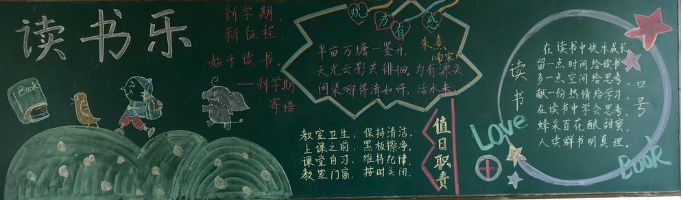 读书乐
Book
新学期
新征程
始于读书
——新学期
寄语
观书有感
朱熹
南宋
半亩方塘一鉴开，
天光云影共徘徊。
问渠那得清如许，
为有源头
活水来。
教室卫生，保持清洁。
上课之前，黑板擦净。
课堂自习，维持纪律。
教室门窗，按时关闭。
值日职责
读书
口号
在读书中快乐成长
留一点时间给读书，
多一点空间给思考，
献一份热情给学习，
在读书中学会思考，
蜂采百花酿甜蜜，
人读群书明真理。
Love
Book